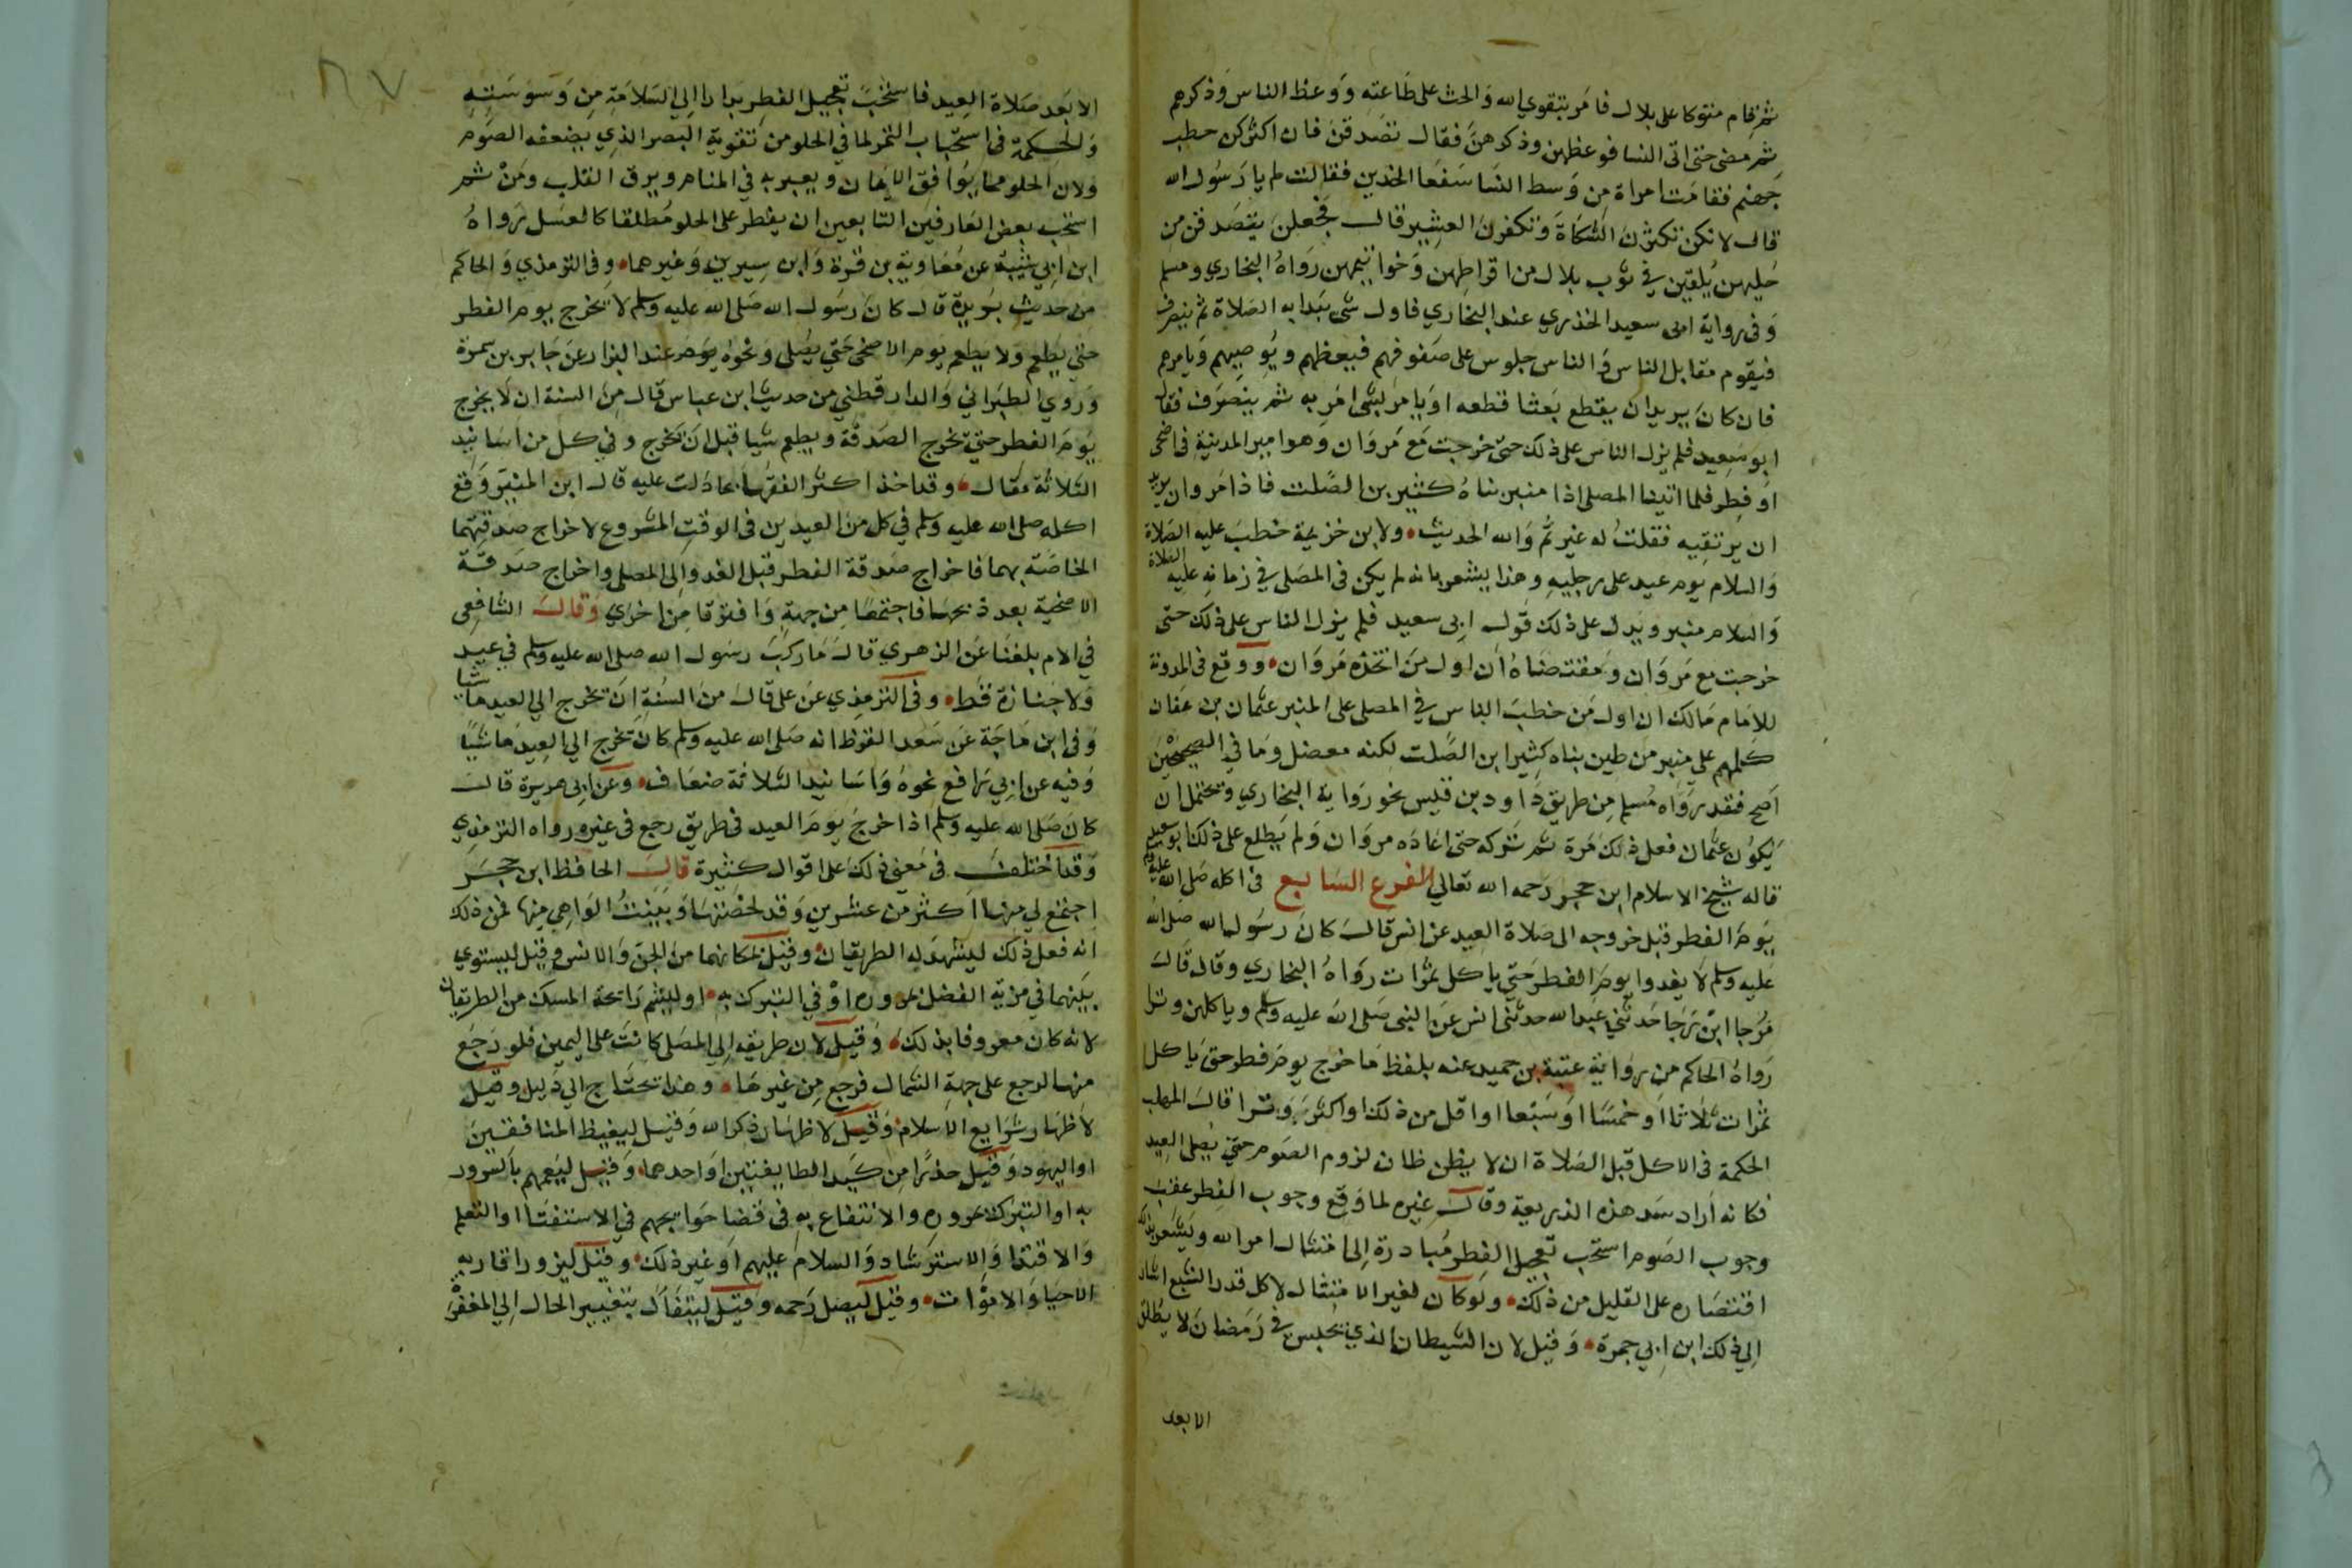 ثم قام متوكا على بلال فامر بتقوي الله والحث على طاعته ووعظ الناس وذكرهم
ثم مضى حتى اتى النسا فوعظهن وذكرهن فقال تصدقن فان اكثركن حطب
جهنم فقامت امراة من وسط النسا سفعا الخدين فقالت لم يا رسول الله
قال لانكن تكثرن الشكاة وتكفرن العشير قال فجعلن يتصدقن من
حليهن يلقين في ثوب بلال من اقراطهن وخواتيمهن رواه البخاري ومسلم
وفى رواية ابى سعيد الخدري عند البخاري فاول شى يبدا به الصلاة ثم ينصرف
فيقوم مقابل الناس والناس جلوس على صفوفهم فيعظهم ويوصيهم ويامرهم
فان كان يريد ان يقطع بعثا قطعه او يامر بشى امر به ثم ينصرف فقال
ابو سعيد فلم يزل الناس على ذلك حتى خرجت مع مروان وهو امير المدينة فى اضحى
او فطر فلما اتينا المصلى اذا منبر بناه كثير بن الصلت فاذا مروان يريد
ان يرتقيه فقلت له غيرتم والله الحديث ولابن خزيمة خطب عليه الصلاة
والسلام يوم عيد على رجليه وهذا يشعر بانه لم يكن فى المصلى في زمانه عليه الصلاة
والسلام منبر ويدل على ذلك قول ابى سعيد فلم يزل الناس على ذلك حتى
خرجت مع مروان ومقتضاه ان اول من اتخذه مروان ووقع فى المدونة
للامام مالك ان اول من خطب الناس في المصلى على المنبر عثمان بن عفان
كلمهم على منبر من طين بناه كثير ابن الصلت لكنه معضل وما في الصحيحين
اصح فقد رواه مسلم من طريق داود بن قيس نحو رواية البخاري ويحتمل ان
يكون عثمان فعل ذلك مرة ثم تركه حتى اعاده مروان ولم يطلع على ذلك ابو سعيد
قاله شيخ الاسلام ابن حجر رحمه الله تعالي الفرع السابع فى اكله صلى الله عليه وسلم
يوم الفطر قبل خروجه الى صلاة العيد عن انس قال كان رسول الله صلى الله
عليه وسلم لا يغدوا يوم الفطر حتي ياكل تمرات رواه البخاري وقال قال
مرجا ابن رجا حدثني عبيدالله حدثنى انس عن النبى صلى الله عليه وسلم وياكلهن وترا
رواه الحاكم من رواية عتبة بن حميد عنه بلفظ ما خرج يوم فطر حتى ياكل
تمرات ثلاثا او خمسا او سبعا او اقل من ذلك او اكثر وترا قال المهلب
الحكمة فى الاكل قبل الصلاة ان لا يظن ظان لزوم الصوم حتي يصلى العيد
فكانه اراد سد هذه الذريعة وقال غيره لما وقع وجوب الفطر عقب
وجوب الصوم استحب تعجيل الفطر مبادرة الى امتثال امر الله ويشعر بذلك
اقتصاره على القليل من ذلك ولو كان لغير الامتثال لاكل قدر الشبع اشار
الي ذلك ابن ابي جمرة وقيل لان الشيطان الذي يحبس في رمضان لا يطلق
الابعد
الابعد صلاة العيد فاستحب تعجيل الفطر بدارا الي السلامة من وسوسته
والحكمة فى استحباب التمر لما في الحلو من تقوية البصر الذي يضعفه الصوم
ولان الحلو مما يوافق الايمان ويعبر به في المنام ويرق القلب ومن ثم
استحب بعض العارفين التابعين ان يفطر على الحلو مطلقا كالعسل رواه
ابن ابي شيبة عن معاوية بن قرة وابن سيرين وغيرهما وفى الترمذي والحاكم
من حديث بريدة قال كان رسول الله صلى الله عليه وسلم لا يخرج يوم الفطر
حتى يطعم ولا يطعم يوم الاضحى حتي يصلى ونحوه عند البزار عن جابر بن سمرة
وروي الطبراني والدارقطني من حديث ابن عباس قال من السنة ان لا يخرج
يوم الفطر حتي تخرج الصدقة ويطعم شيا قبل ان يخرج وفي كل من اسانيد
الثلاثة مقال وقد اخذ اكثر الفقها بما دلت عليه قال ابن المنير وقع
اكله صلى الله عليه وسلم في كل من العيدين فى الوقت المشروع لاخراج صدقتهما
الخاصة بهما فاخراج صدقة الفطر قبل الغدو الى المصلى واخراج صدقة
الاضحية بعد ذبحها فاجتمعا من جهة وافترقا من اخري وقال الشافعى
في الام بلغنا عن الزهري قال ما ركب رسول الله صلى الله عليه وسلم في عيد
ولا جنازة قط وفى الترمذي عن على قال من السنة ان تخرج الي العيد ماشيا
وفى ابن ماجة عن سعد القرظ انه صلى الله عليه وسلم كان يخرج الي العيد ماشيا
وفيه عن ابي رافع نحوه واسانيد الثلاثة ضعاف وعن ابى هريرة قال
كان صلى الله عليه وسلم اذا خرج يوم العيد فى طريق رجع فى غيره رواه الترمذي
وقد اختلف فى معنى ذلك على اقوال كثيرة قال الحافظ ابن حجر
اجتمع لي منها اكثر من عشرين وقد لخصتها وبينت الواهي منها فمن ذلك
انه فعل ذلك ليشهد له الطريقان وقيل سكانهما من الجن والانس وقيل ليستوي
بينهما في مزية الفضل بمروره او في التبرك به او ليشم رائحة المسك من الطريقان
لانه كان معروفا بذلك وقيل لان طريقه الي المصلى كانت على اليمين فلو رجع
منها لرجع على جهة الشمال فرجع من غيرها وهذا يحتاج الي دليل وقيل
لاظهار شرايع الاسلام وقيل لاظهار ذكر الله وقيل ليغيظ المنافقين
او اليهود وقيل حذرا من كيد الطايفتين او احدهما وقيل ليعمهم بالسرور
به او التبرك بمروره والانتفاع به فى قضا حوايجهم في الاستفتا او التعلم
والاقتدا والاسترشاد والسلام عليهم او غير ذلك وقيل ليزور اقاربه
الاحيا والاموات وقيل ليصل رحمه وقيل ليتفال بتغيير الحال الي المغفرة